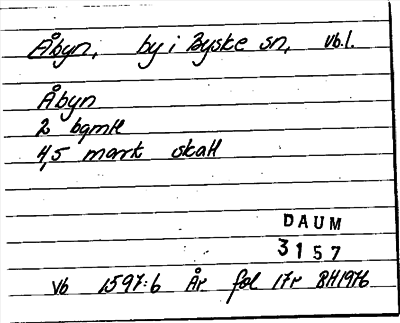 Åbyn, by i Byske sn, vb.l.
Åbyn
2 bgmH
4,5 mark skatt
DAUM
3157
Vb 1597:6 År fol 17r BH1976